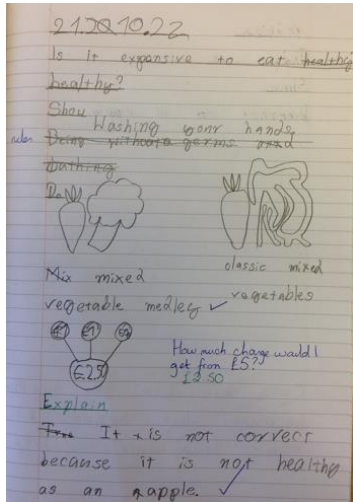 21.10.22
Is it expansive to eat healthey
healthy?
Show
Washing your hands
rules Being without germs and
bathing
Mix mixed
vegetable medley ✓
classic mixed
vegetables
£1 £1
£2.5
How much change would I
get from £5?
£2.50
Explain
It is not correct
because it is not healthy
as an apple. ✓